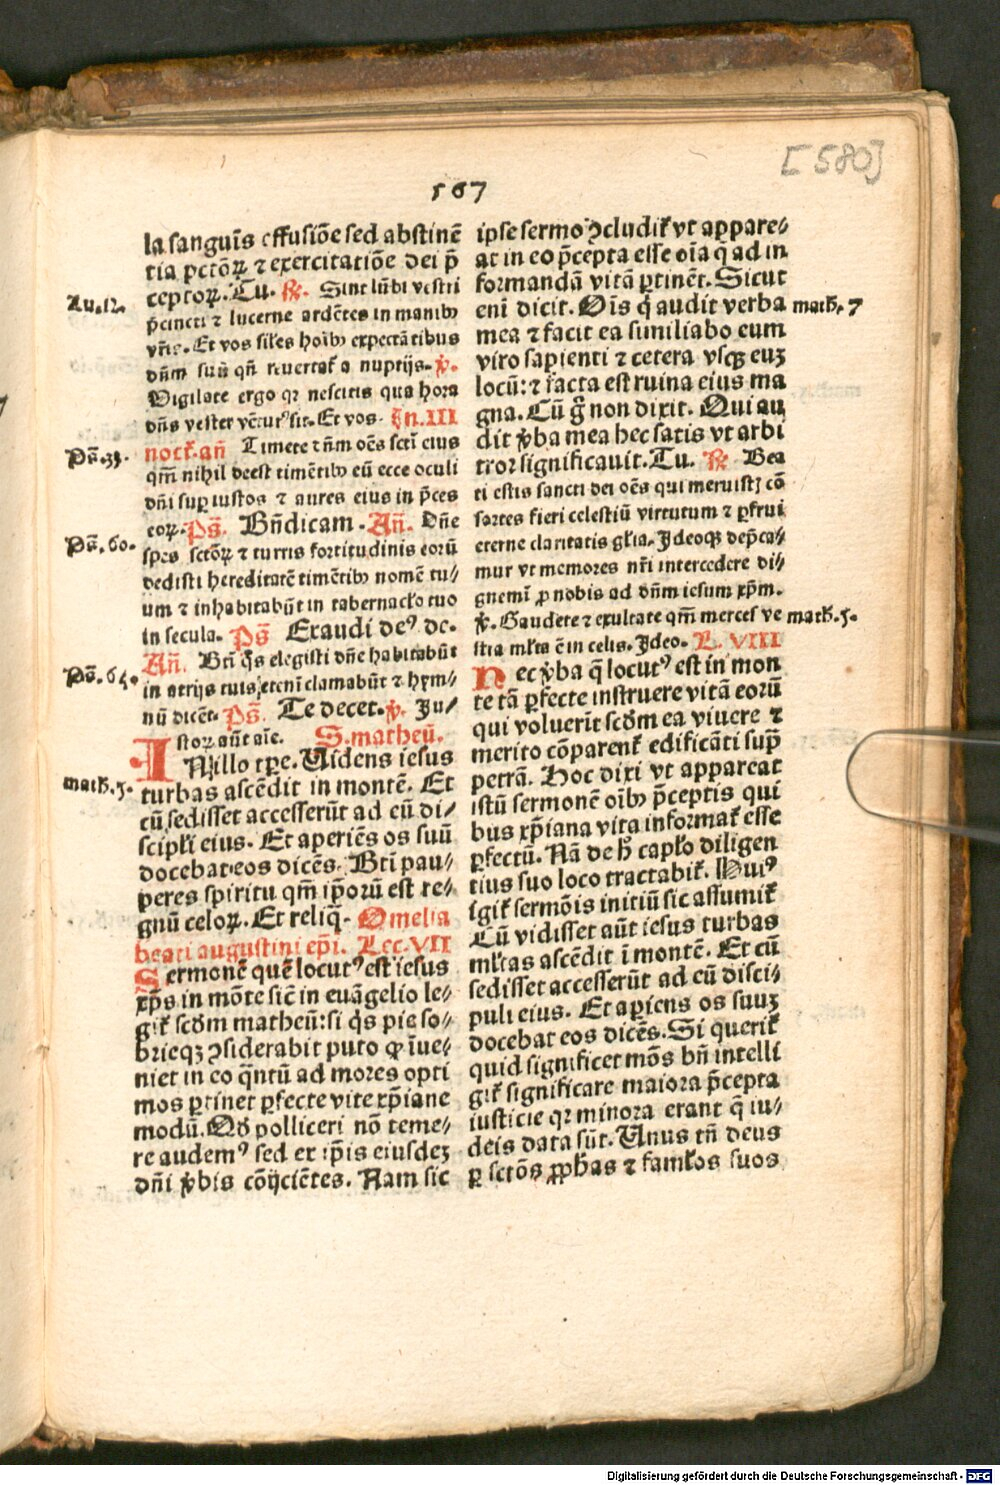 [580]
167
la sanguis̄ effusiōe sed abstinē
tia pctōꝝ ⁊ exercitatiōe dei p̄
ceptoꝝ. Tu. ℟. Sint lūbi vestri
Lu.12.
p̄cincti ⁊ lucerne ardētes in manibꝰ
vr̄is. Et vos siłes hoibꝰ expectātibus
dn̄m suū qn̄ reuertat᷑ a nuptijs. ℣.
Vigilate ergo qꝛ nescitis qua hora
dn̄s vester vēturꝰ sit. Et vos. In.III
noct᷑. an̄ Timete dn̄m oēs scti eius
Ps̄.33.
qm̄ nihil deest timētibꝰ eū ecce oculi
dn̄i suꝑ iustos ⁊ aures eius in p̄ces
eoꝝ. Ps̄. Bn̄dicam. An̄. Dn̄e
Ps̄.60.
spes sctōꝝ ⁊ turris fortitudinis eorū
dedisti hereditatē timētibꝰ nomē tu⸗
um ⁊ inhabitabūt in tabernacło tuo
in secula. Ps̄ Exaudi deꝰ de.
An̄. Bti q̄s elegisti dn̄e habitabūt
Ps̄.64.
in atrijs tuis etenī clamabūt ⁊ hym⸗
nū dicēt. Ps̄. Te decet. ℣. Ju⸗
storꝝ aūt aīe. S. matheū.
IN illo tꝑe. Videns iesus
math.5.
turbas ascēdit in montē. Et
cū sedisset accesserūt ad eū di⸗
scipłi eius. Et aperiēs os suū
docebat eos dicēs. Bti pau⸗
peres spiritu qm̄ ip̄orū est re⸗
gnū celoꝝ. Et reliq̄. Omelia
beati augustini ep̄i. Lec. VII
Sermonē quē locutꝰ est iesus
xp̄s in mōte sic̄ in euāgelio le⸗
git᷑ scd̄m matheū: si q̄s pie so⸗
brieqꝫ ꝯsiderabit puto ꝙ īue⸗
niet in eo q̄ntū ad mores opti
mos ꝑtinet ꝑfecte vite xp̄iane
modū. Qd̄ polliceri nō teme⸗
re audemꝰ sed ex ip̄is eiusdeꝫ
dn̄i v̄bis cōijciētes. Nam sic
ipse sermo ꝯcludit᷑ vt appare⸗
at in eo p̄cepta esse oīa q̄ ad in
formandā vitā ꝑtinēt. Sicut
eni dicit. Oīs q̄ audit verba
math.7
mea ⁊ facit ea similiabo eum
viro sapienti ⁊ cetera vsqꝫ euꝫ
locū: ⁊ facta est ruina eius ma
gna. Cū ḡ non dixit. Qui au
dit v̄ba mea hec satis vt arbi
tror significauit. Tu. ℟. Bea
ti estis sancti dei oēs qui meruistꝭ cō
sortes fieri celestiū virtutum ⁊ ꝑfrui
eterne claritatis głia. Jdeoqꝫ dep̄ca⸗
mur vt memores nr̄i intercedere di⸗
gnemī ꝓ nobis ad dn̄m iesum xp̄m.
℣. Gaudete ⁊ exultate qm̄ merces ve
math.5.
stra młta ē in celis. Jdeo. L. VIII
Nec v̄ba q̄ locutꝰ est in mon
te tā ꝑfecte instruere vitā eorū
qui voluerit scd̄m ea viuere ⁊
merito cōparent᷑ edificāti sup̄
petrā. Hoc dixi vt appareat
istū sermonē oībꝰ p̄ceptis qui
bus xp̄iana vita informat᷑ esse
ꝑfectū. Nā de h̄ capło diligen
tius suo loco tractabit᷑. Huiꝰ
igit᷑ sermōis initiū sic assumit᷑
Cū vidisset aūt iesus turbas
młtas ascēdit ī montē. Et cū
sedisset accesserūt ad eū disci⸗
puli eius. Et aperiens os suuꝫ
docebat eos dicēs. Si querit᷑
quid significet mōs bn̄ intelli
git᷑ significare maiora p̄cepta
iusticie qꝛ minora erant q̄ iu⸗
deis data sūt. Vnus tn̄ deus
ꝑ sctōs ꝓphas ⁊ famłos suos
Digitalisierung gefördert durch die Deutsche Forschungsgemeinschaft - DFG